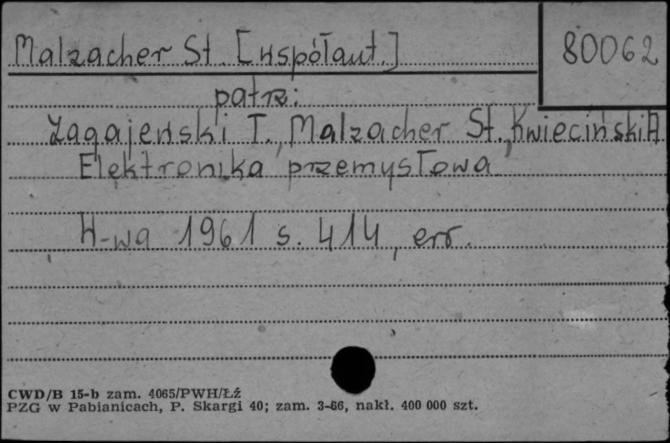 Malzacher St. [współaut.]
80062
patrz:
Zagajewski T., Malzacher St., Kwieciński A
Elektronika przemysłowa
W-wa 1961 s. 414, err.
CWD/B 15-b zam. 4065/PWH/Łź
PZG w Pabianicach, P. Skargi 40; zam. 3-66, nakł. 400 000 szt.